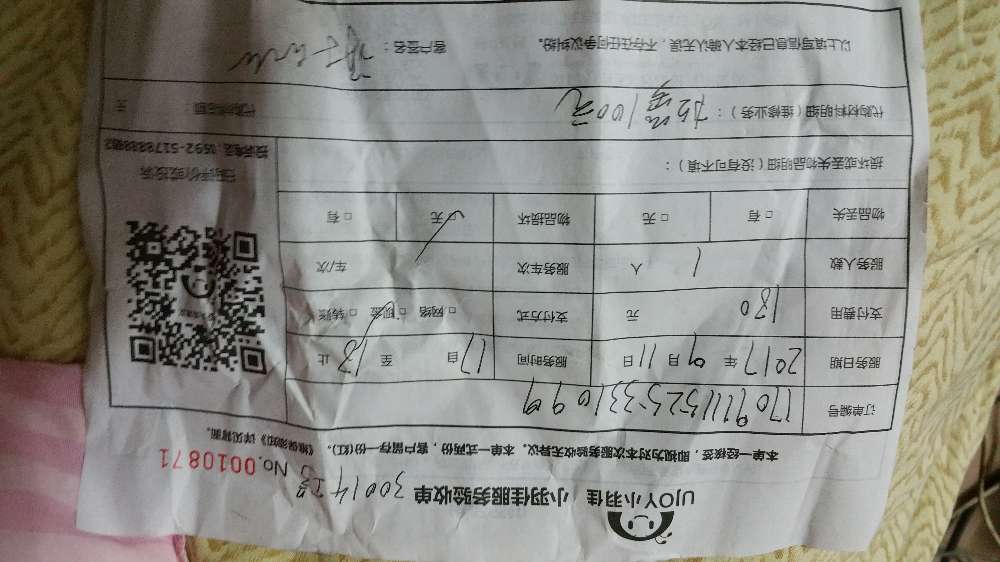 UJOY小羽佳 小羽佳服务验收单 30014号 No.0010871
本单一经核签，即视为对本次服务验收无异议。本单一式两份，客户留存一份(红)。《维保须知》详见背面。
订单编号
服务日期 2017年9月11日 服务时间 自17至18止
支付费用 180元 支付方式 □网络 □现金 □转账
服务人数 1人 服务车次 车/次
物品丢失 □有 □无 物品损坏 □无 □有
扫码评价或投诉
损坏或丢失物品明细（没有可不填）：
代购材料明细（维修业务）：100元 代购材料总额： 元
以上填写信息已经本人确认无误，不存在任何争议纠纷。 客户签名：